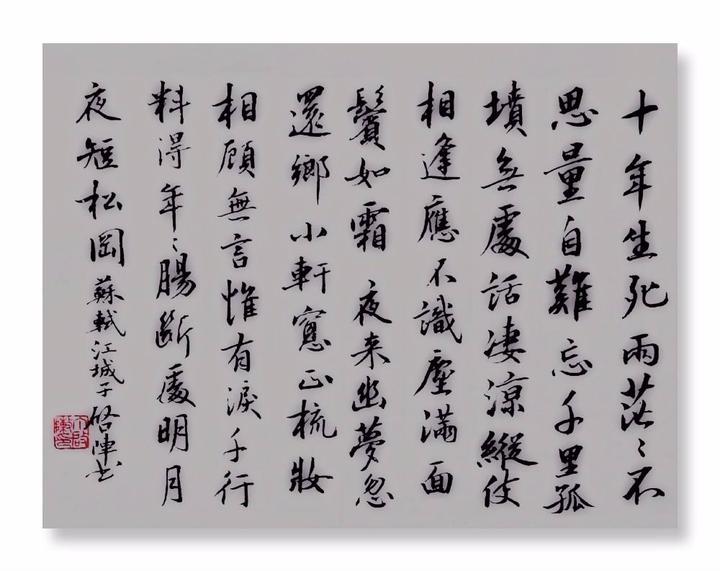 十年生死兩茫〻不
思量自難忘千里孤
墳無處話凄涼縱使
相逢應不識塵滿面
鬢如霜 夜来幽夢忽
還鄉小軒窻正梳妝
相顧無言惟有淚千行
料得年〻腸斷處明月
夜短松岡 蘇軾江城子 啓陣书